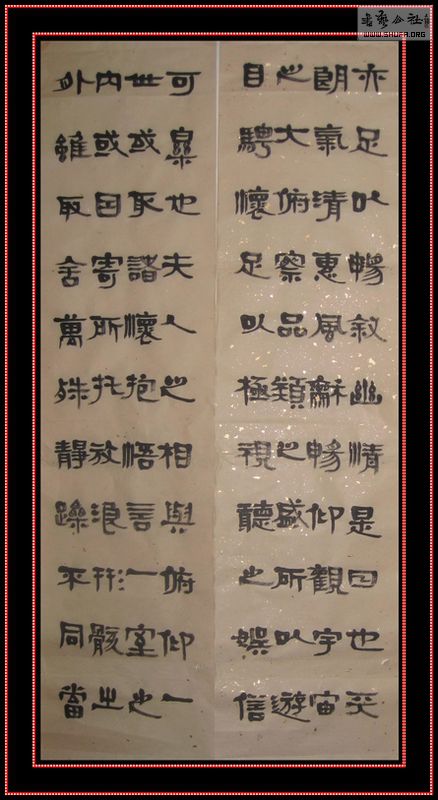 亦足以暢叙幽情是日也天
朗氣清惠風龢暢仰觀宇宙
之大俯察品類之盛所以遊
目騁懷足以極視聽之娛信
可樂也夫人之相與俯仰一
世或取諸懷抱悟言一室之
內或因寄所托放浪形骸之
外雖取舍萬殊靜躁不同當
WWW.SHUFA.ORG